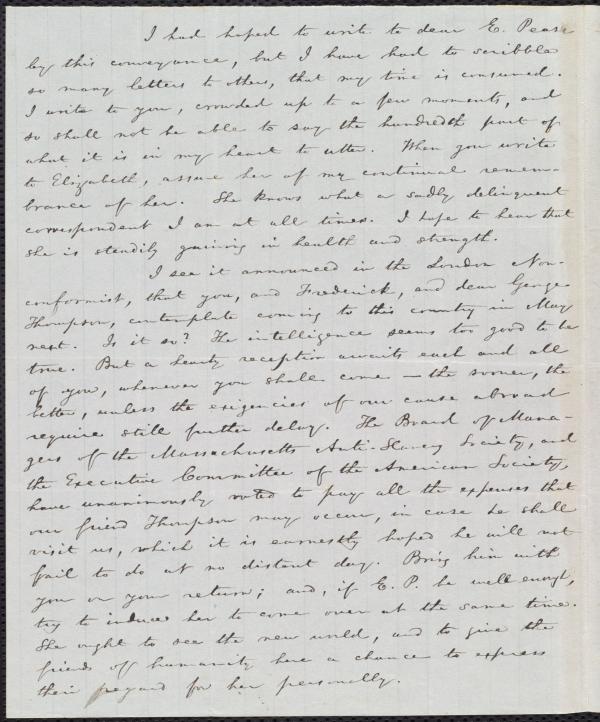 I had hoped to write to dear E. Pease
by this conveyance, but I have had to scribble
so many letters to others, that my time is consumed.
I write to you, crowded up to a few moments, and
so shall not be able to say the hundredth part of
what it is in my heart to utter. When you write
to Elizabeth, assure her of my continual remem-
brance of her. She knows what a sadly delinquent
correspondent I am at all times. I hope to hear that
she is steadily gaining in health and strength.
I see it announced in the London Non-
conformist, that you, and Frederick, and dear George
Thompson, contemplate coming to this country in May
next. Is it so? The intelligence seems too good to be
true. But a hearty reception awaits each and all
of you, whenever you shall come — the sooner, the
better, unless the exigencies of our cause abroad
require still further delay. The Board of Mana-
gers of the Massachusetts Anti-Slavery Society, and
the Executive Committee of the American Society,
have unanimously voted to pay all the expenses that
our friend Thompson may occur, in case he shall
visit us, which it is earnestly hoped he will not
fail to do at no distant day. Bring him with
you on your return; and, if E. P. be well enough,
try to induce her to come over at the same time.
She ought to see the new world, and to give the
friends of humanity here a chance to express
their regard for her personally.